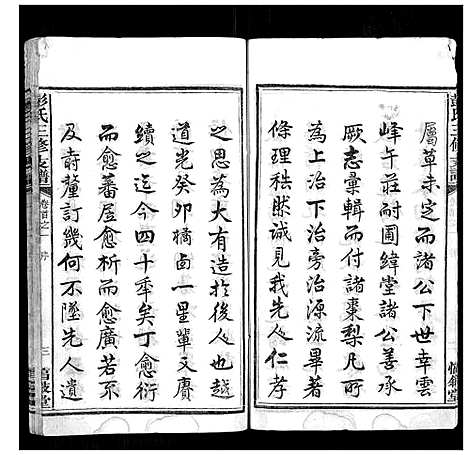 屬草未定而諸公下世幸雲
峰午莊耐圃緯堂諸公善承
厥志彙輯而付諸棗梨凡所
為上治下治旁治源流畢著
條理秩然誠見我先人仁孝
之思為大有造於後人也越
道光癸卯橘卣一星輩又賡
續之迄今四十年矣丁愈衍
而愈蕃居愈析而愈廣若不
及時釐訂幾何不墜先人遺
彭氏三修支譜
卷首之一
序
三